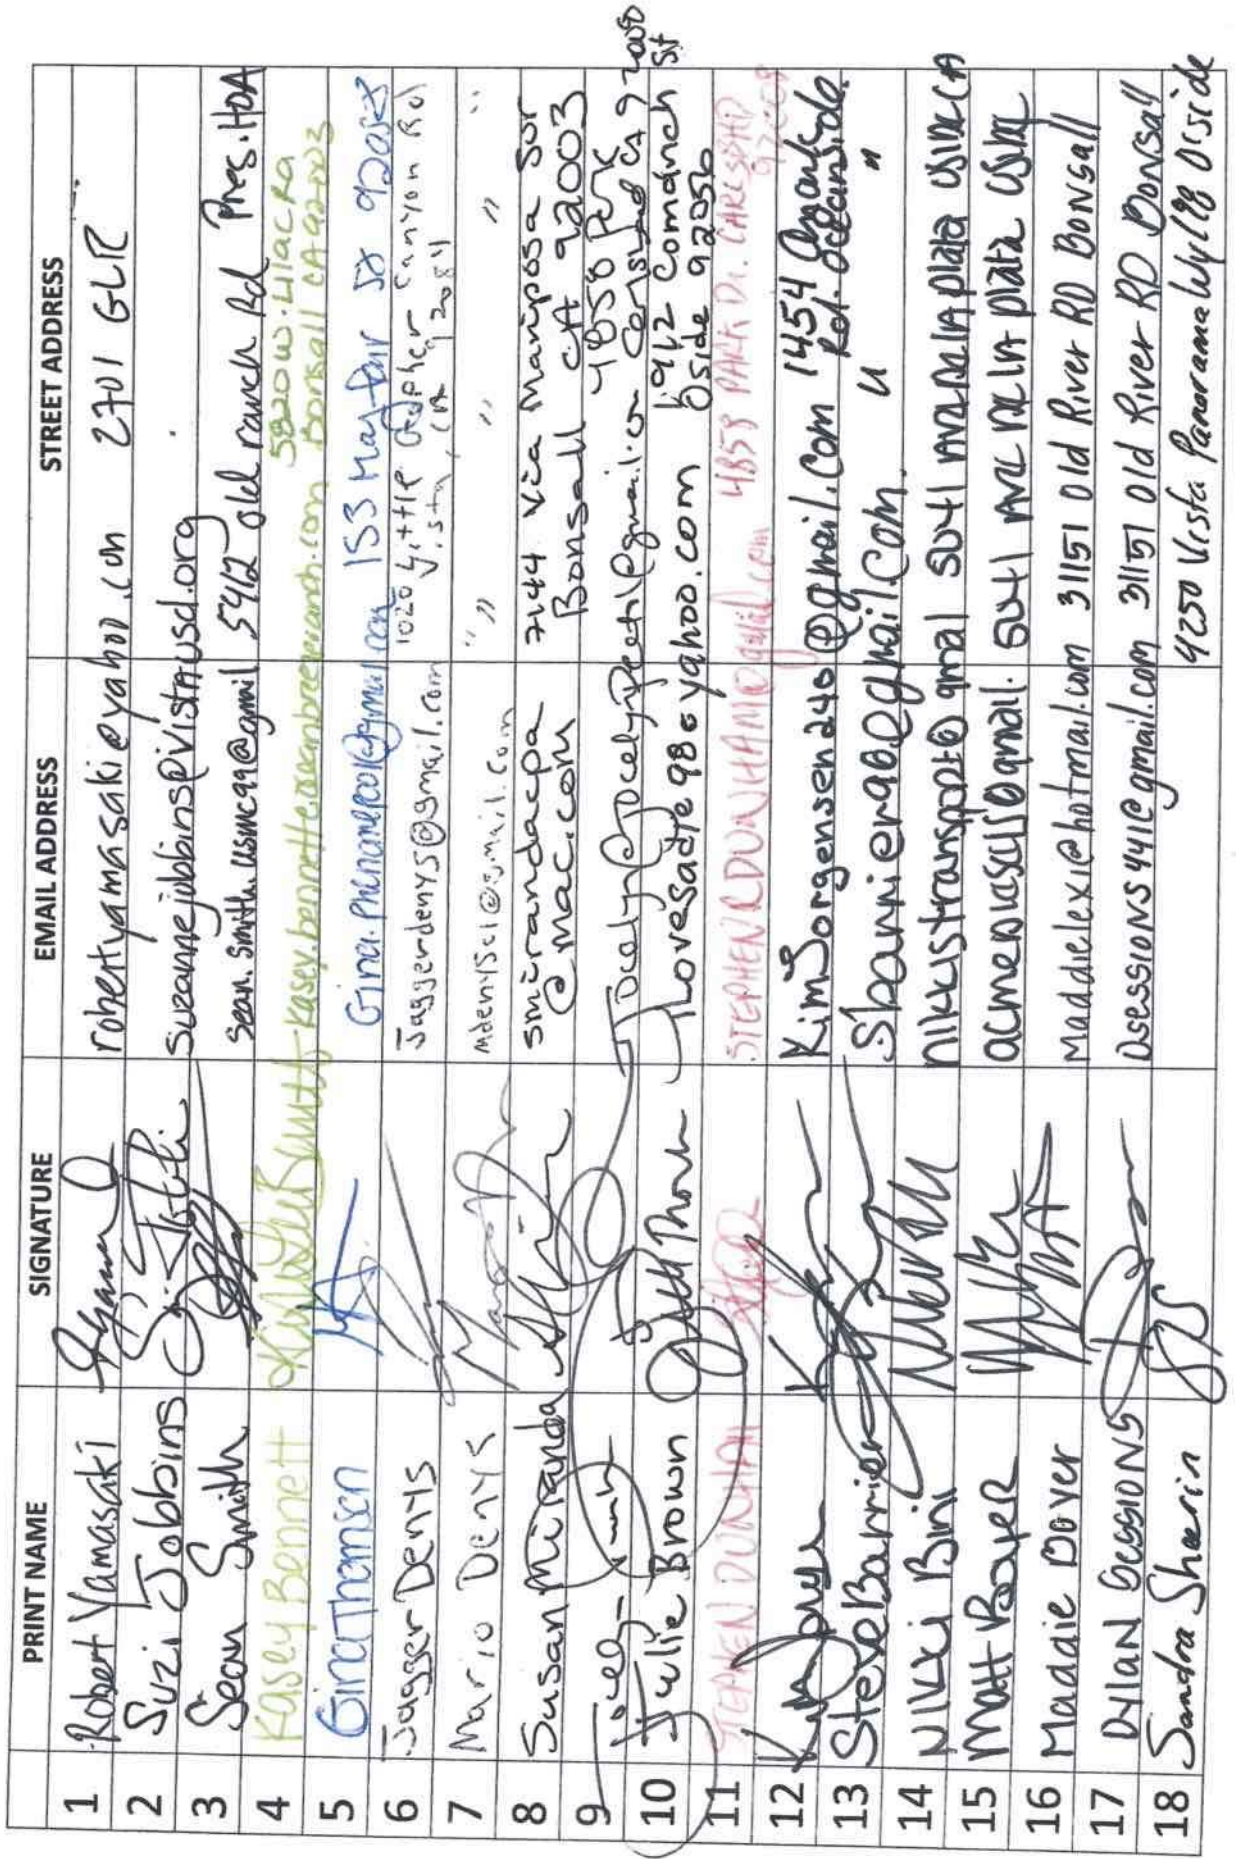 PRINT NAME SIGNATURE EMAIL ADDRESS STREET ADDRESS
1 Robert Yamasaki robertyamasaki@yahoo.com 2701 GLR
2 Suzi Jobbins suzannejobbins@vistausd.org
3 Sean Smith sean.smith.usmc99@gmil 5912 old ranch Rd Pres. HOA
4 Kasey Bennett Kasey.bennett@oceanbreezeranch.com 5820 W. Lilac Rd
Bonsall CA 92003
5 Gina Thomsen 153 Mayfair St
6 Jagger Denys Jaggerdenys@gmail.com 1020 Little Gopher Canyon Rd
Vista, CA 92084
7 Mario Denys Mdenyssc1@gmail.com " " " " "
8 Susan Miranda smirandacpa 7144 Via Mariposa Sur
@mac.com Bonsall CA 92003
9 4858 Park
Carlsbad CA
10 Julie Brown Jlovesadie98@yahoo.com Comanch St
Oside 92056
11 STEPHEN DUNHAM STEPHENRDUNHAM@gmail.com 4858 PARK Dr. CARLSBAD
92008
12 KimJorgensen240@gmail.com 1454
Rd. Oceanside.
13 Steve Bannier Sbannier90@gmail.com. " "
14 Nikki Bini nikkistransport@gmal 5041
15 Matt Boyer 5041
16 Maddie Doyer Maddielexi@hotmail.com 31151 Old River RD Bonsall
17 Dylan Sessions Dsessions441@gmail.com 31151 Old River RD Bonsall
18 Sandra Shearin 4250 Vista Panorama Wy Oside